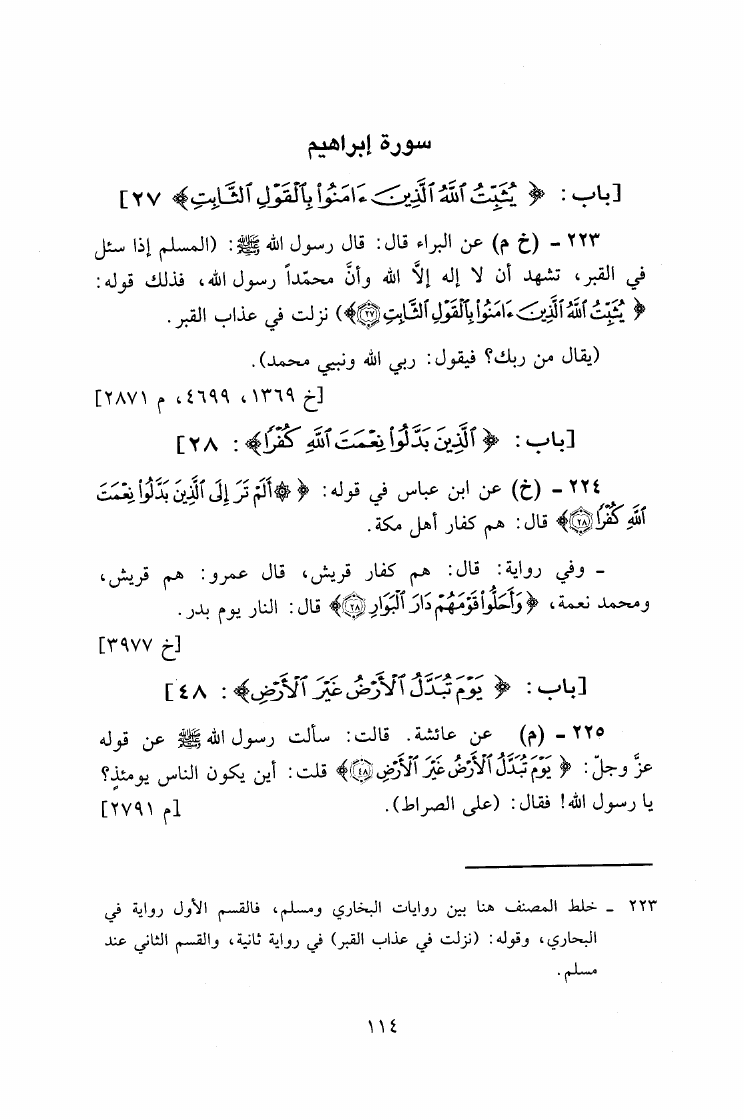 سورة إبراهيم
[باب: ﴿ يُثَبِّتُ اللَّهُ الَّذِينَ ءَامَنُوا بِالْقَوْلِ الثَّابِتِ ﴾ ٢٧]
٢٢٣ - (خ م) عن البراء قال: قال رسول الله ﷺ: (المسلم إذا سئل
في القبر، تشهد أن لا إله إلاَّ الله وأنَّ محمّداً رسول الله، فذلك قوله:
﴿ يُثَبِّتُ اللَّهُ الَّذِينَ ءَامَنُوا بِالْقَوْلِ الثَّابِتِ ٢٧ ﴾) نزلت في عذاب القبر.
(يقال من ربك؟ فيقول: ربي الله ونبيي محمد).
[خ ١٣٦٩، ٤٦٩٩، م ٢٨٧١]
[باب: ﴿ الَّذِينَ بَدَّلُوا نِعْمَتَ اللَّهِ كُفْرًا ﴾: ٢٨]
٢٢٤ - (خ) عن ابن عباس في قوله: ﴿ ۞ أَلَمْ تَرَ إِلَى الَّذِينَ بَدَّلُوا نِعْمَتَ
اللَّهِ كُفْرًا ٢٨ ﴾ قال: هم كفار أهل مكة.
- وفي رواية: قال: هم كفار قريش، قال عمرو: هم قريش،
ومحمد نعمة، ﴿ وَأَحَلُّوا قَوْمَهُمْ دَارَ الْبَوَارِ ٢٨ ﴾ قال: النار يوم بدر.
[خ ٣٩٧٧]
[باب: ﴿ يَوْمَ تُبَدَّلُ الْأَرْضُ غَيْرَ الْأَرْضِ ﴾: ٤٨]
٢٢٥ - (م) عن عائشة. قالت: سألت رسول الله ﷺ عن قوله
عزَّ وجلّ: ﴿ يَوْمَ تُبَدَّلُ الْأَرْضُ غَيْرَ الْأَرْضِ ٤٨ ﴾ قلت: أين يكون الناس يومئذٍ؟
يا رسول الله! فقال: (على الصراط). [م ٢٧٩١]
٢٢٣ - خلط المصنف هنا بين روايات البخاري ومسلم، فالقسم الأول رواية في
البحاري، وقوله: (نزلت في عذاب القبر) في رواية ثانية، والقسم الثاني عند
مسلم.
١١٤